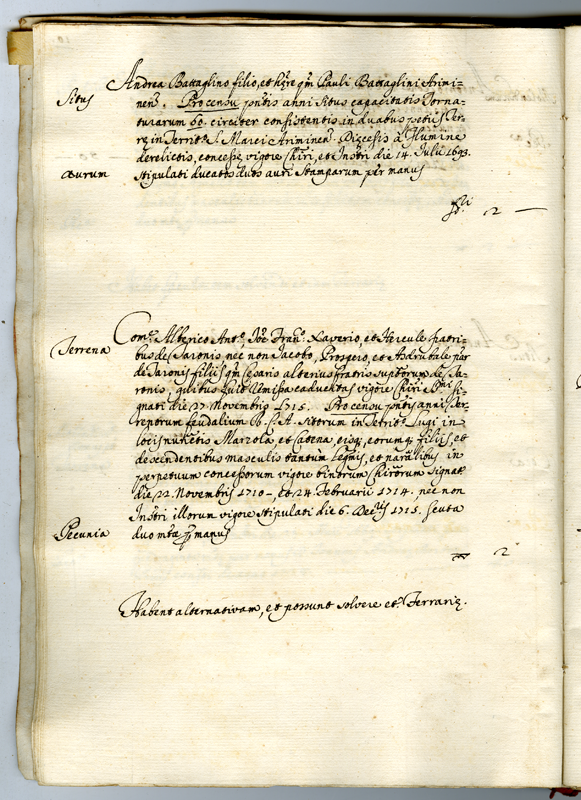 Situs
Andrea Battaglino filio, et hęre qm̄ Pauli Battaglini Arimi-
nen̄. Pro censu pn̄tis anni Situs capacitatis Torna-
turarum 60. circiter consistentis in duabus petijs Ter-
rę in Territ.º S. Marci Ariminen̄. Dięcesis à Flumine
derelictis, concessę vigore Chiri, et Instri die 14. Julii 1693.
Aurum
stipulati ducatos duos auri Stamparum per manus
2 —
Terrena
Com. Alberico Ant.º Joẽ Fran.º Xaverio, et Hercule fratri-
bus de Saionis nec non Jacobo, Prospero, et Asdrubale par.
de Saionis filiis qm̄ Cęsaris alterius fratris suptorum de Sa-
ronis, quibus fuit emissa caducitas vigore Chiri Smi si-
gnati die 27. Novembris 1715. Pro censu pn̄tis anni Ter-
renorum feudalium S. A. sitorum in Territ.º Lugi in
locis nuncupatis Marzola, et Catena, eisq, eorumq, filiis, et
descendentibus masculis tantum legmis, et naralibus in
perpetuum concessorum vigore binorum Chirorum signat.
die 22. Novembris 1710 -, et 24. Februarii 1714. nec non
Instri illorum vigore stipulati die 6. Decbris 1715. scuta
Pecunia
duo mtæ per manus
2
Habent alternativam, et possunt solvere et Ferrarię.